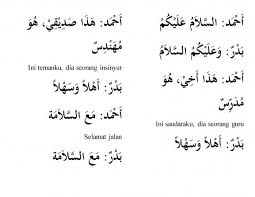 أَحْمَد: السَّلاَمُ عَلَيْكُمْ
بَدْرٌ: وَعَلَيْكُمُ السَّلاَمُ
أَحْمَد: هَذَا أَخِيْ، هُوَ
مُدَرِّسٌ
Ini saudaraku, dia seorang guru
بَدْرٌ: أَهْلاً وَسَهْلاً
أَحْمَد: هَذَا صَدِيْقِيْ، هُوَ
مُهَنْدِسٌ
Ini temanku, dia seorang insinyur
بَدْرٌ: أَهْلاً وَسَهْلاً
أَحْمَد: مَعَ السَّلاَمَة
Selamat jalan
بَدْرٌ: مَعَ السَّلاَمَة